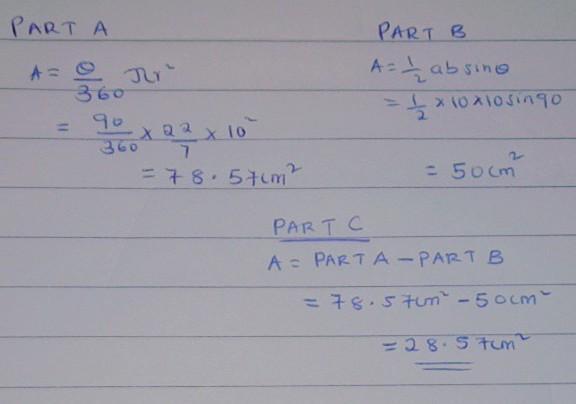 PART A
A = θ/360 πr²
= 90/360 × 22/7 × 10²
= 78.57cm²
PART B
A = 1/2 ab sinθ
= 1/2 × 10 × 10 sin 90
= 50cm²
PART C
A = PART A - PART B
= 78.57cm² - 50cm²
= 28.57cm²